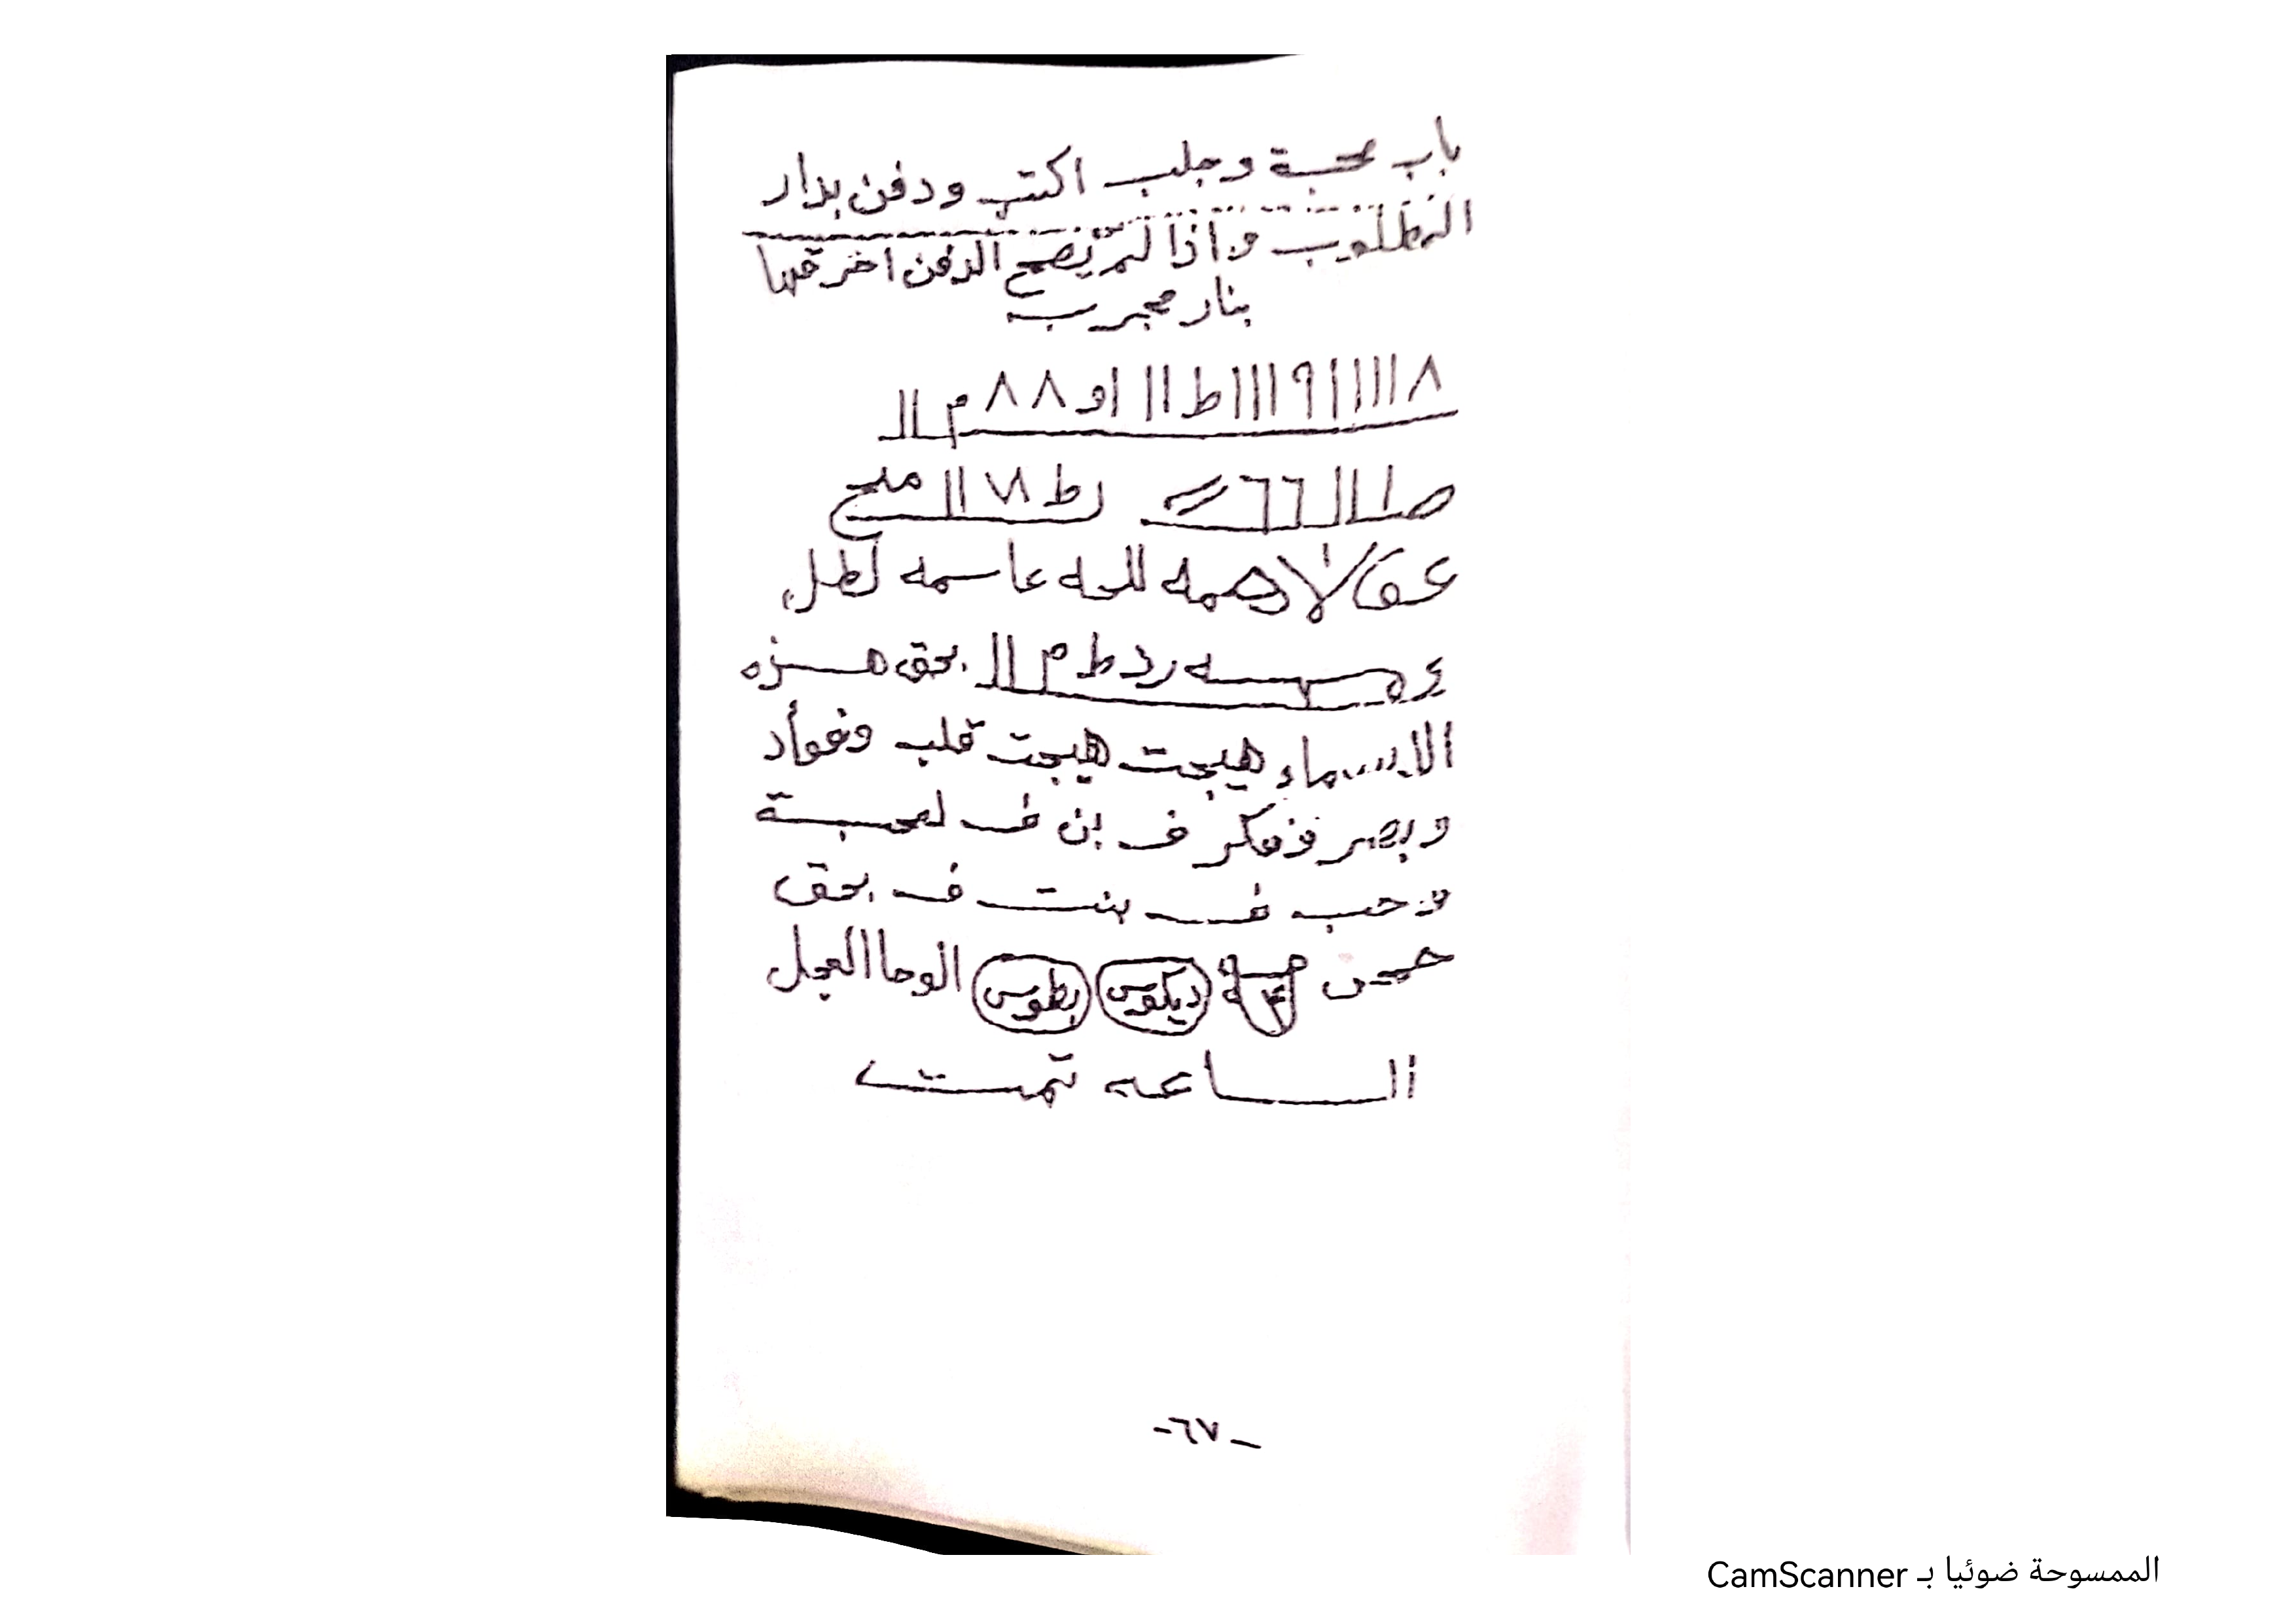 باب محبة وجلب اكتب ودفن بدار
المطلوب واذا لم يصح الدفن احرقها
بنار مجرب
٨١١١١١٩١١١ط١١او٨٨م١١
رط٧١١١
للحه عاسمه
رد ط م ١١ بحق هذه
الاسماء هيجت هيجت قلب وفوأد
وبصر وفكر ف بن ف لمحبة
وحب ف بنت ف بحق
ديكوس بطوس الوحا العجل
الساعه تمت
-٦٧-
الممسوحة ضوئيا بـ CamScanner